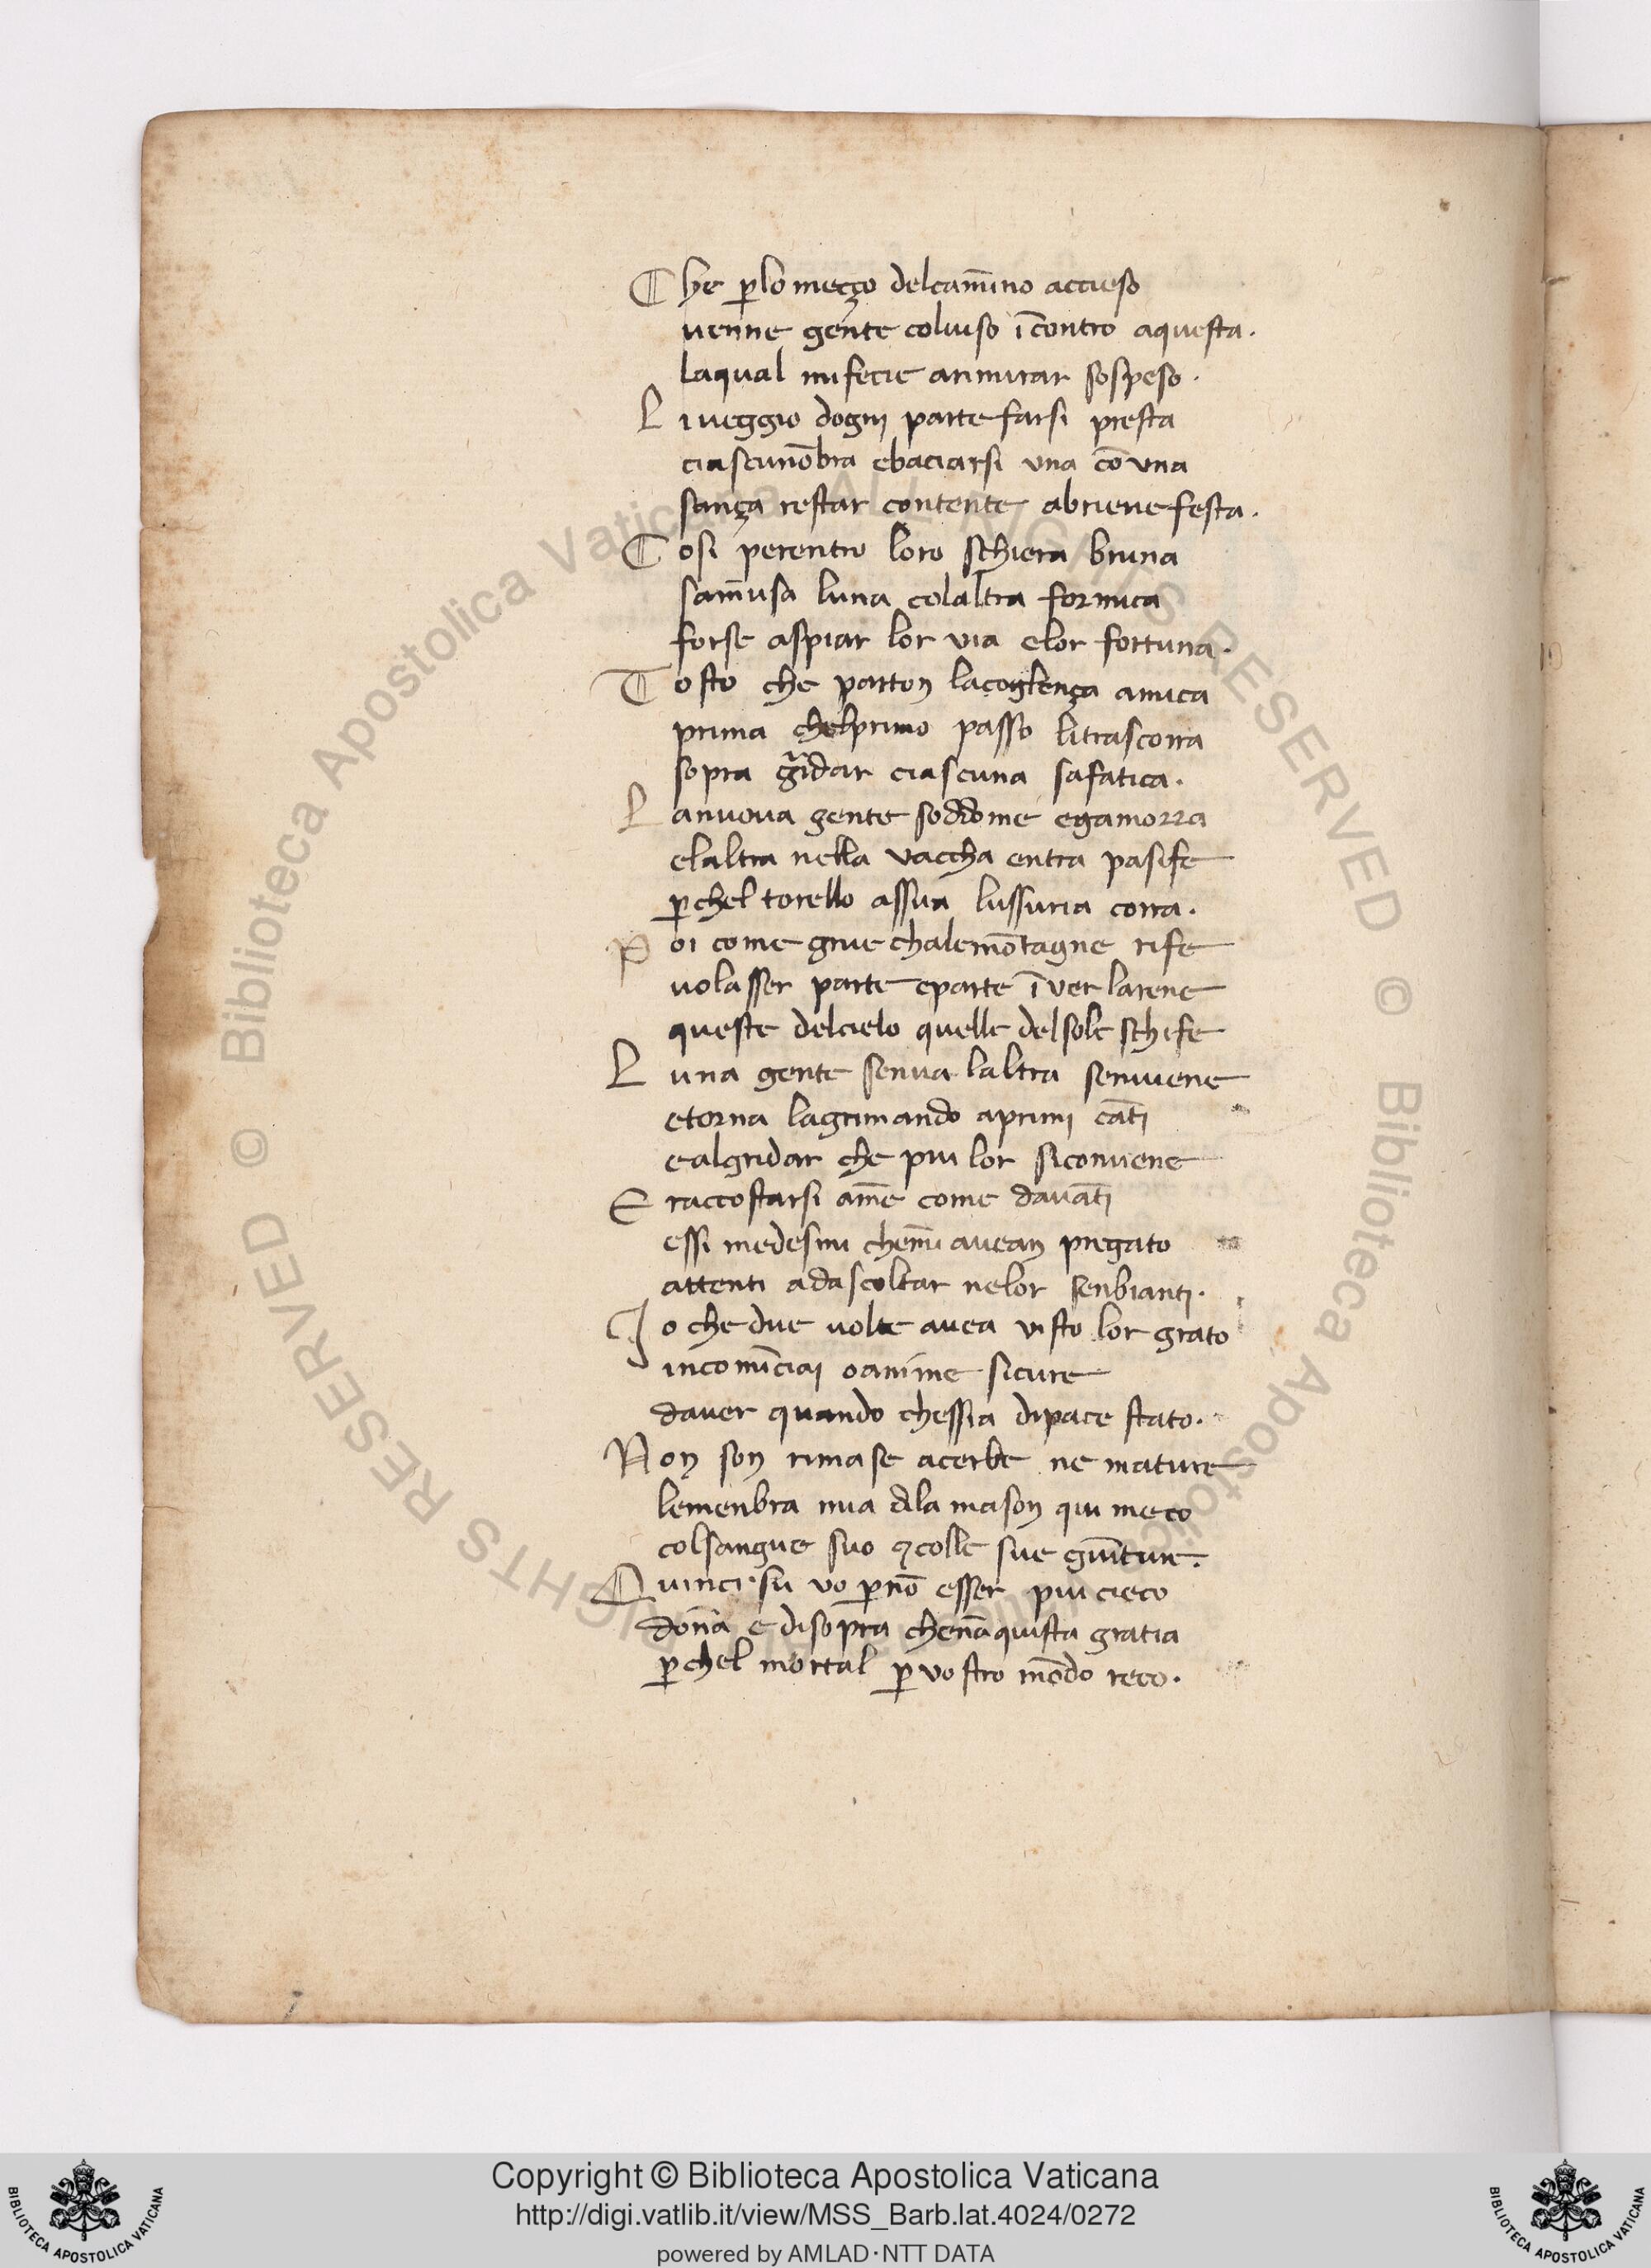 Che ꝑlo meçço delcam̄ino accieso
uenne gente coluiso ı̄contro aquesta.
laqual mifecie arimirar sospeso.
Li ueggio dogni parte farsi presta
ciascunōbra ebaciarsi una cō una
sança restar contente abrieue festa.
Cosi perentro loro schiera bruna
sam̄usa luna colaltra formica
forse aspiar lor uia elor fortuna.
Tosto che parton lacoglença amica
prima chelprimo passo litrascorra
sopra gridar ciascuna safatica.
Lanuoua gente soddome egamorra
elaltra nella vaccha entra pasife
ꝑchel torello assua lussuria corra.
Poi come grue chalemōtagne rife
uolasser parte eparte ı̄uer larene
queste delcielo quelle delsole schife
Luna gente senua laltra senuiene
etorna lagrimando aprimi cāti
ealgridar che piu lor siconuiene
E raccostarsi am̄e come dauāti
essi medesimi chem̄i auean pregato
attenti adascoltar nelor senbianti.
Io che due uolte auea uisto lor grato
incomīciai oanime sicure
dauer quando chessia dipace stato.
Non son rimase acerbe ne mature
lemenbra mia dila mason qui meco
colsangue suo ⁊colle sue giūture.
Quinci su uo ꝑnō esser piu cieco
don̄a e disopra chenāquista gratia
ꝑchel mortal ꝑuostro mōdo reco.
© Biblioteca Apostolica Vaticana ALL RIGHTS RESERVED
© Biblioteca Apostolica Vaticana ALL RIGHTS RESERVED
Copyright © Biblioteca Apostolica Vaticana
http://digi.vatlib.it/view/MSS_Barb.lat.4024/0272
powered by AMLAD·NTT DATA
BIBLIOTECA APOSTOLICA VATICANA
BIBLIOTECA APOSTOLICA VATICANA